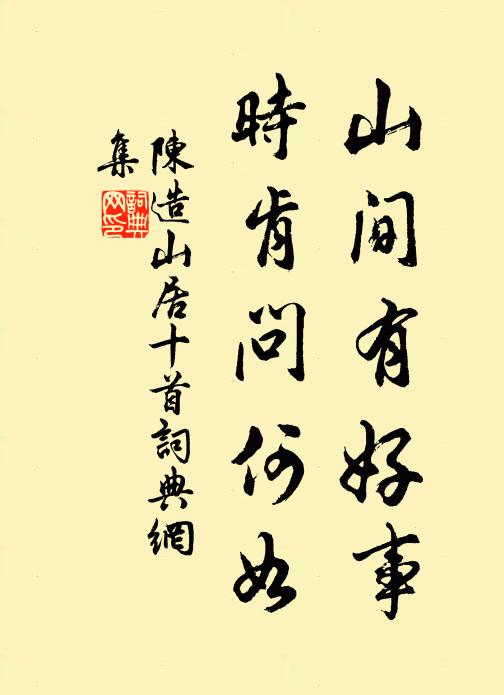 山間有好事
時肯問何如
陳造山居十首詞典網
集
詞典
网印